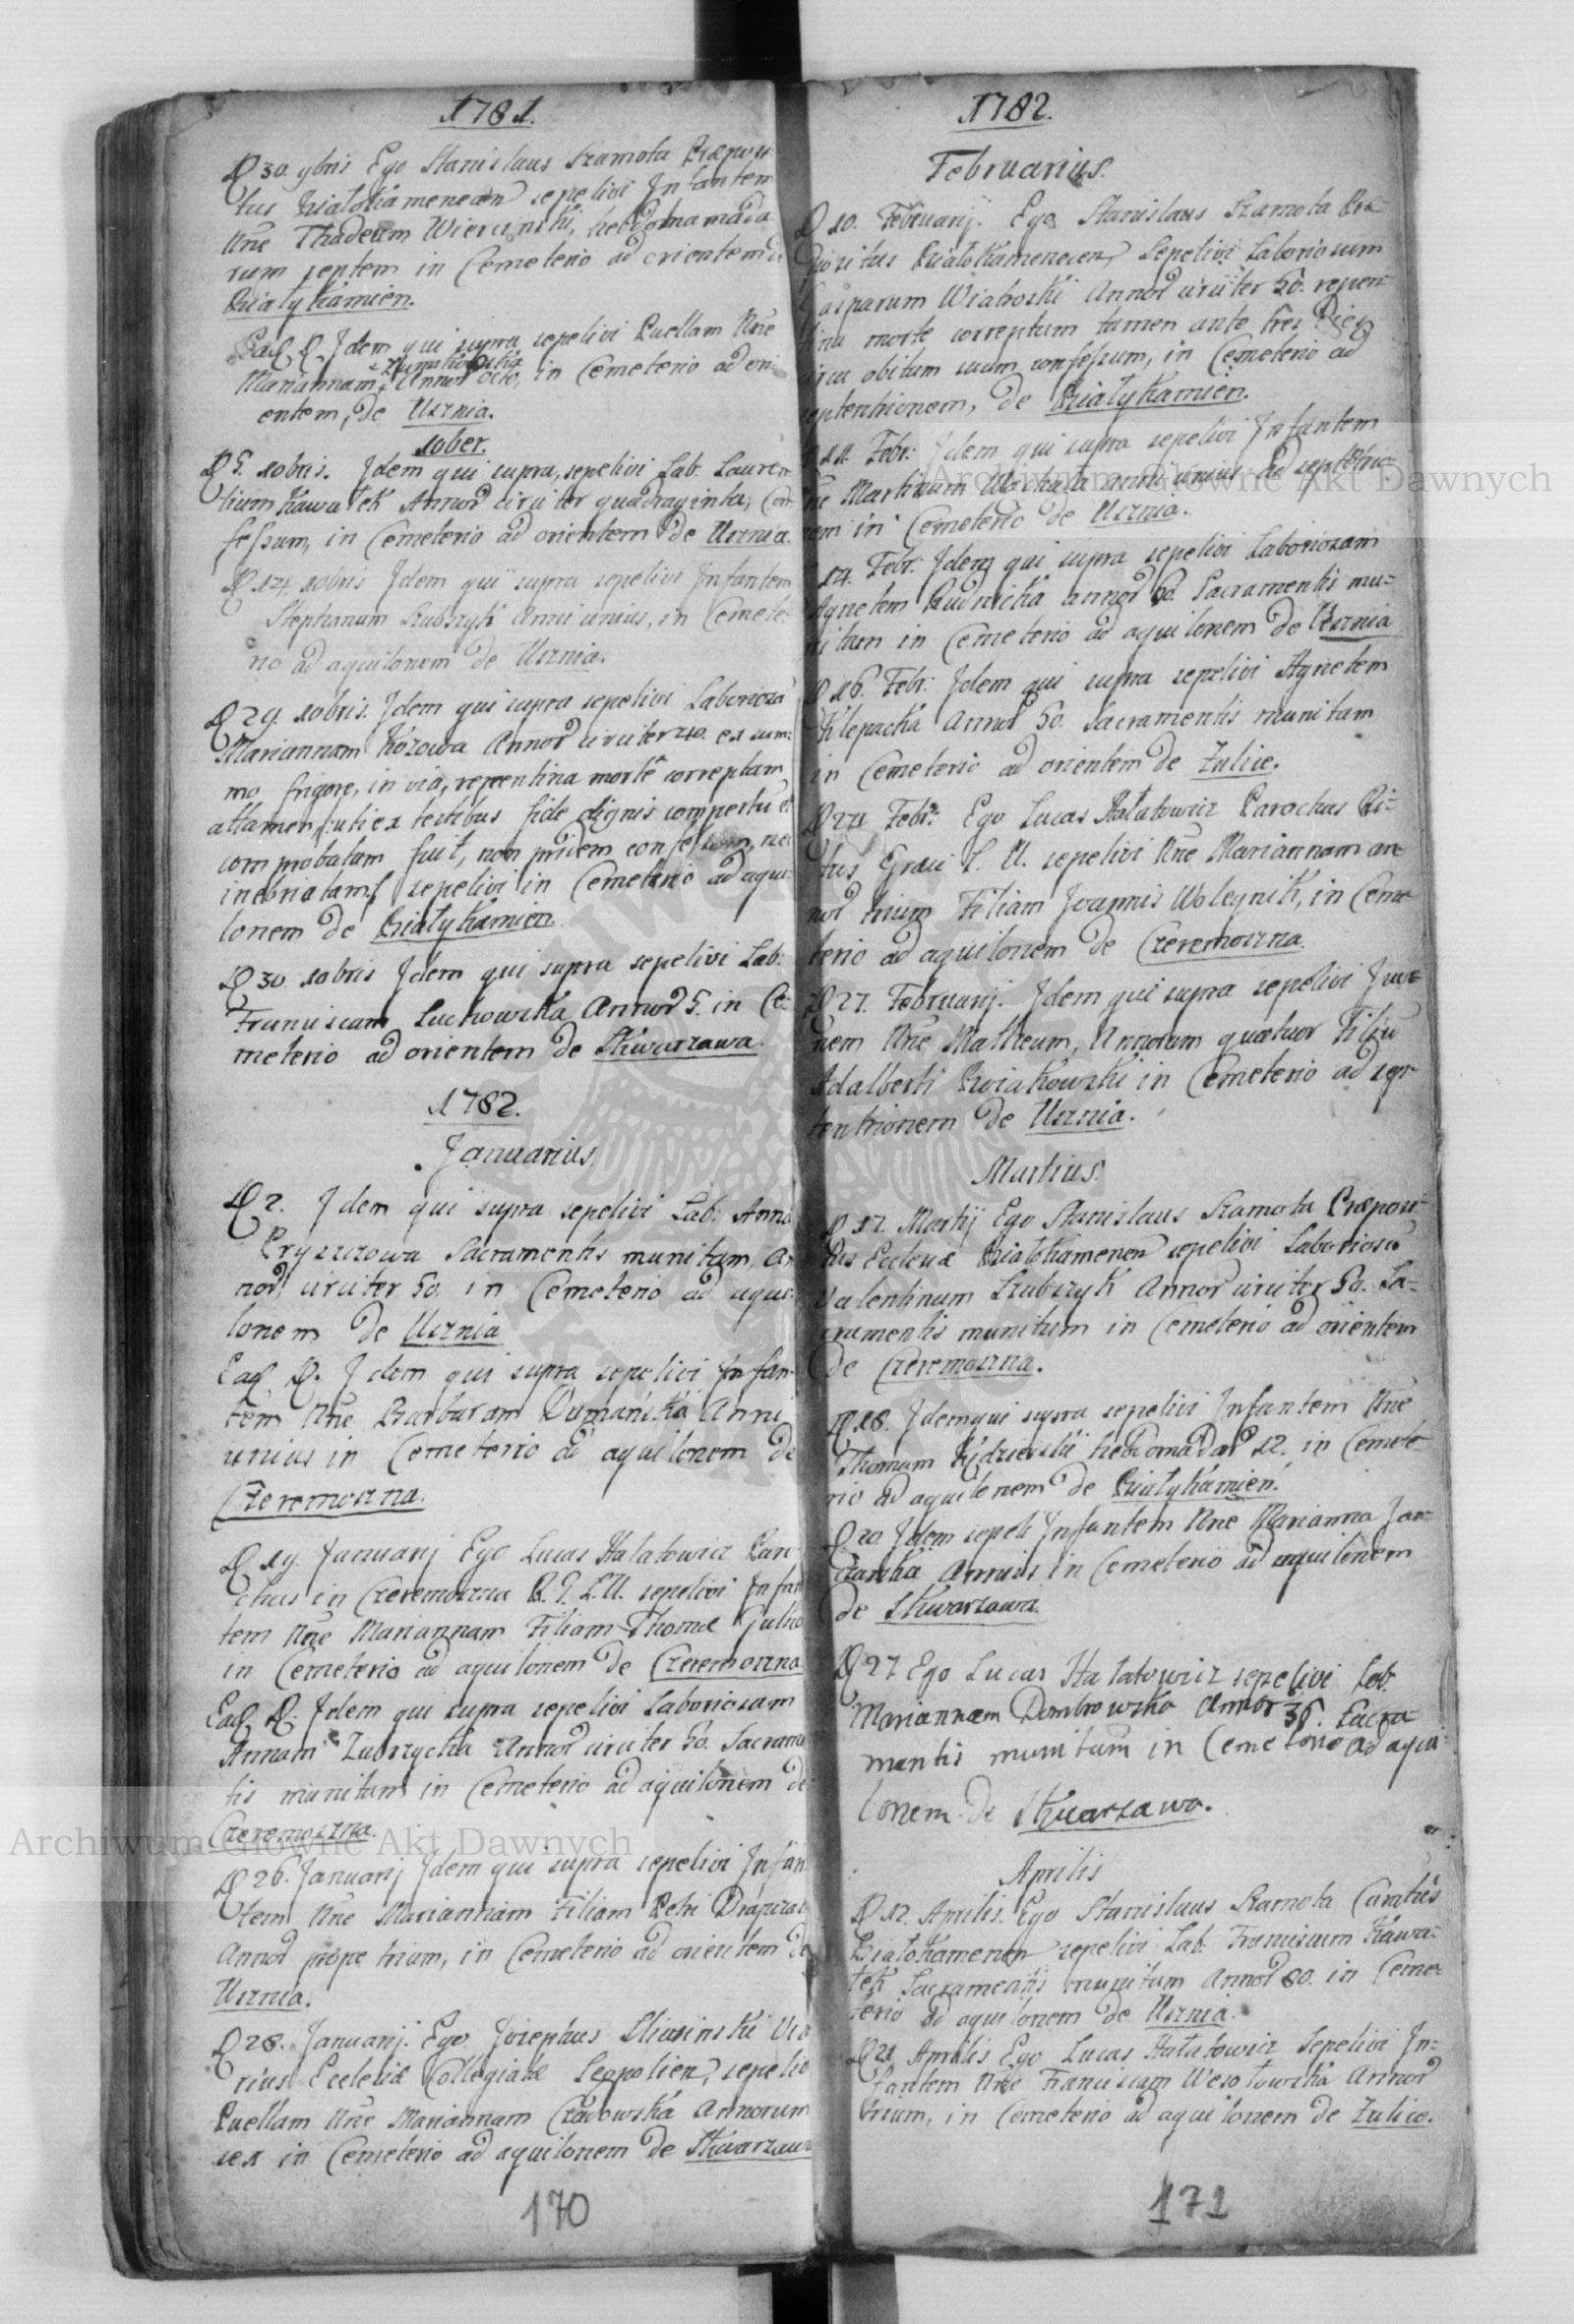 1781.
D 30. 9bris Ego Stanislaus Szamota Præposi
tus Białokamenecen sepelivi Infantem
Nñe Thadeum Wiercinski, hebdomada
rum septem in Cemeterio ad orientem de
Białykamien.
Ead D. Idem qui supra sepelivi Puellam Nñe
Mariannam Annor octo, in Cemeterio ad ori-
entem, de Usznia.
10ber.
D 5. 10bris. Idem qui supra, sepelivi Lab: Lauren
tium Kawałek Annor circiter quadraginta, Con-
fessum, in Cemeterio ad orientem de Usznia.
D 14. 10bris Idem qui supra sepelivi Infantem
Stephanum Szubczyk Anni unius, in Cemete-
rio ad aquilonem de Usznia.
D 29. 10bris. Idem qui supra sepelivi Laboriosã
Mariannam Kozowa Annor circiter 40. ex sum-
mo frigore, in via, repentina morte correptam
attamen, uti ex testibus fide dignis compertũ et
comprobatam fuit, non pridem confessam, nec
inebriatam sepelivi in Cemeterio ad aqui-
lonem de Białykamien.
D 30 10bris Idem qui supra sepelivi Lab:
Franciscam Luchowska Annor 5. in Ce-
meterio ad orientem de Skwarzawa.
1782.
Januarius.
D 2. Idem qui supra sepelivi Lab: Anna
Pryszczowa Sacramentis munitam, An
nor circiter 50. in Cemeterio ad aqui-
lonem de Usznia
Ead D. Idem qui supra sepelivi Infan-
tem Nñe Barbaram Dumańska Anni
unius in Cemeterio ad aquilonem de
Czeremoszna.
D 19. Januarij Ego Lucas Hałatowicz Paro-
chus in Czeremoszna R. G. L. U. sepelivi Infan
tem Nñe Mariannam Filiam Thomæ
in Cemeterio ad aquilonem de Czeremoszna
Ead D. Idem qui supra sepelivi Laboriosam
Annam Zubrzycka Annor circiter 50. Sacramen
tis munitam in Cemeterio ad aquilonem de
Czeremoszna.
D 26. Januarij Idem qui supra sepelivi Infan
tem Nñe Mariannam Filiam Petri
Annor prope trium, in Cemeterio ad orientem de
Usznia.
D 28. Januarij. Ego Josephus Sliwinski Vica
rius Ecclesiæ Collegiatæ Leopolien, sepelivi
Puellam Nñe Mariannam Annorum
sex in Cemeterio ad aquilonem de Skwarzawa
170
1782.
Februarius.
D 10. Februarij. Ego Stanislaus Szamota Præ-
positus Białokamenecen, Sepelivi Laboriosum
Casparum Wiatroski Annor circiter 50. repen-
tina morte correptum tamen ante tres Dies
circa obitum suum confessum, in Cemeterio ad
septentrionem, de Białykamien.
D 11. Febr: Idem qui supra sepelivi Infantem
Nñe Martinum anni unius ad septentrio-
nem in Cemeterio de Usznia.
14. Febr: Idem qui supra sepelivi Laboriosam
Agnetem Rudnicka annor 60. Sacramentis mu-
nitam in Cemeterio ad aquilonem de Usznia
D 16. Febr: Idem qui supra sepelivi Agnetem
Klepacka Annor 50. Sacramentis munitam
in Cemeterio ad orientem de Zulice.
D 24 Febr: Ego Lucas Hałatowicz Parochus Ri-
tus Græci L. U. sepelivi Nñe Mariannam an-
nor trium Filiam Joannis Woleynik, in Ceme
terio ad aquilonem de Czeremoszna.
D 27. Februarij. Idem qui supra sepelivi Juve
nem Nñe Mattheum, Annorum quatuor Filiũ
Adalberti Kwiatkowski in Cemeterio ad sep-
tentrionem de Usznia.
Martius.
D 17. Martij Ego Stanislaus Szamota Præposi-
tus Ecclesiæ Białokamenen sepelivi Laboriosũ
Valentinum Szubczyk Annor circiter 50. Sa-
cramentis munitum in Cemeterio ad orientem
de Czeremoszna.
D 18. Idem qui supra sepelivi Infantem Nñe
Thomam hebdomadar 12. in Cemete-
rio ad aquilonem de Białykamien.
D 20. Idem sepeli Infantem Nñe Marianna
in Cemeterio ad aquilonem
de Skwarzawa.
D 27 Ego Lucas Hałatowicz sepelivi Lab.
Mariannam Dombrowska Annor 36. Sacra-
mentis munitam in Cemeterio ad aqui-
lonem de Skwarzawa.
Aprilis
D 12. Aprilis. Ego Stanislaus Szamota Curatus
Białokamenen sepelivi Lab. Franciscum Kawa-
łek Sacramentis munitum Annor 80. in Ceme-
terio ad aquilonem de Usznia.
D 21 Aprilis Ego Lucas Hałatowicz Sepelivi In-
fantem Nñe Franciscam Wesołowska Annor
trium, in Cemeterio ad aquilonem de Zulice.
171
Archiwum Główne Akt Dawnych
Archiwum Główne Akt Dawnych